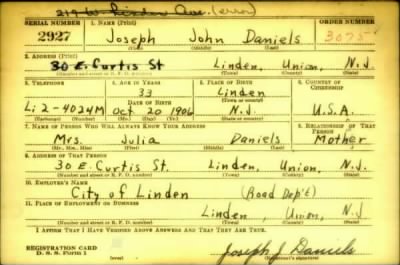 219 W. Linden Ave. (over)
SERIAL NUMBER 1. NAME (Print) ORDER NUMBER
2927 Joseph John Daniels 3075
(First) (Middle) (Last)
2. ADDRESS (Print)
30 E. Curtis St Linden, Union, N.J.
(Number and street or R. F. D. number) (Town) (County) (State)
3. TELEPHONE 4. AGE IN YEARS 5. PLACE OF BIRTH 6. COUNTRY OF CITIZENSHIP
33 Linden
DATE OF BIRTH (Town or county)
Li 2-4024M Oct 20 1906 N.J. U.S.A.
(Exchange) (Number) (Mo.) (Day) (Yr.) (State or country)
7. NAME OF PERSON WHO WILL ALWAYS KNOW YOUR ADDRESS 8. RELATIONSHIP OF THAT PERSON
Mrs. Julia Daniels Mother
(Mr., Mrs., Miss) (First) (Middle) (Last)
9. ADDRESS OF THAT PERSON
30 E. Curtis St. Linden, Union, N.J.
(Number and street or R. F. D. number) (Town) (County) (State)
10. EMPLOYER'S NAME
City of Linden (Road Dep't)
11. PLACE OF EMPLOYMENT OR BUSINESS
Linden, Union, N.J.
(Number and street or R. F. D. number) (Town) (County) (State)
I AFFIRM THAT I HAVE VERIFIED ABOVE ANSWERS AND THAT THEY ARE TRUE.
REGISTRATION CARD
D. S. S. Form 1 (over) Joseph J Daniels